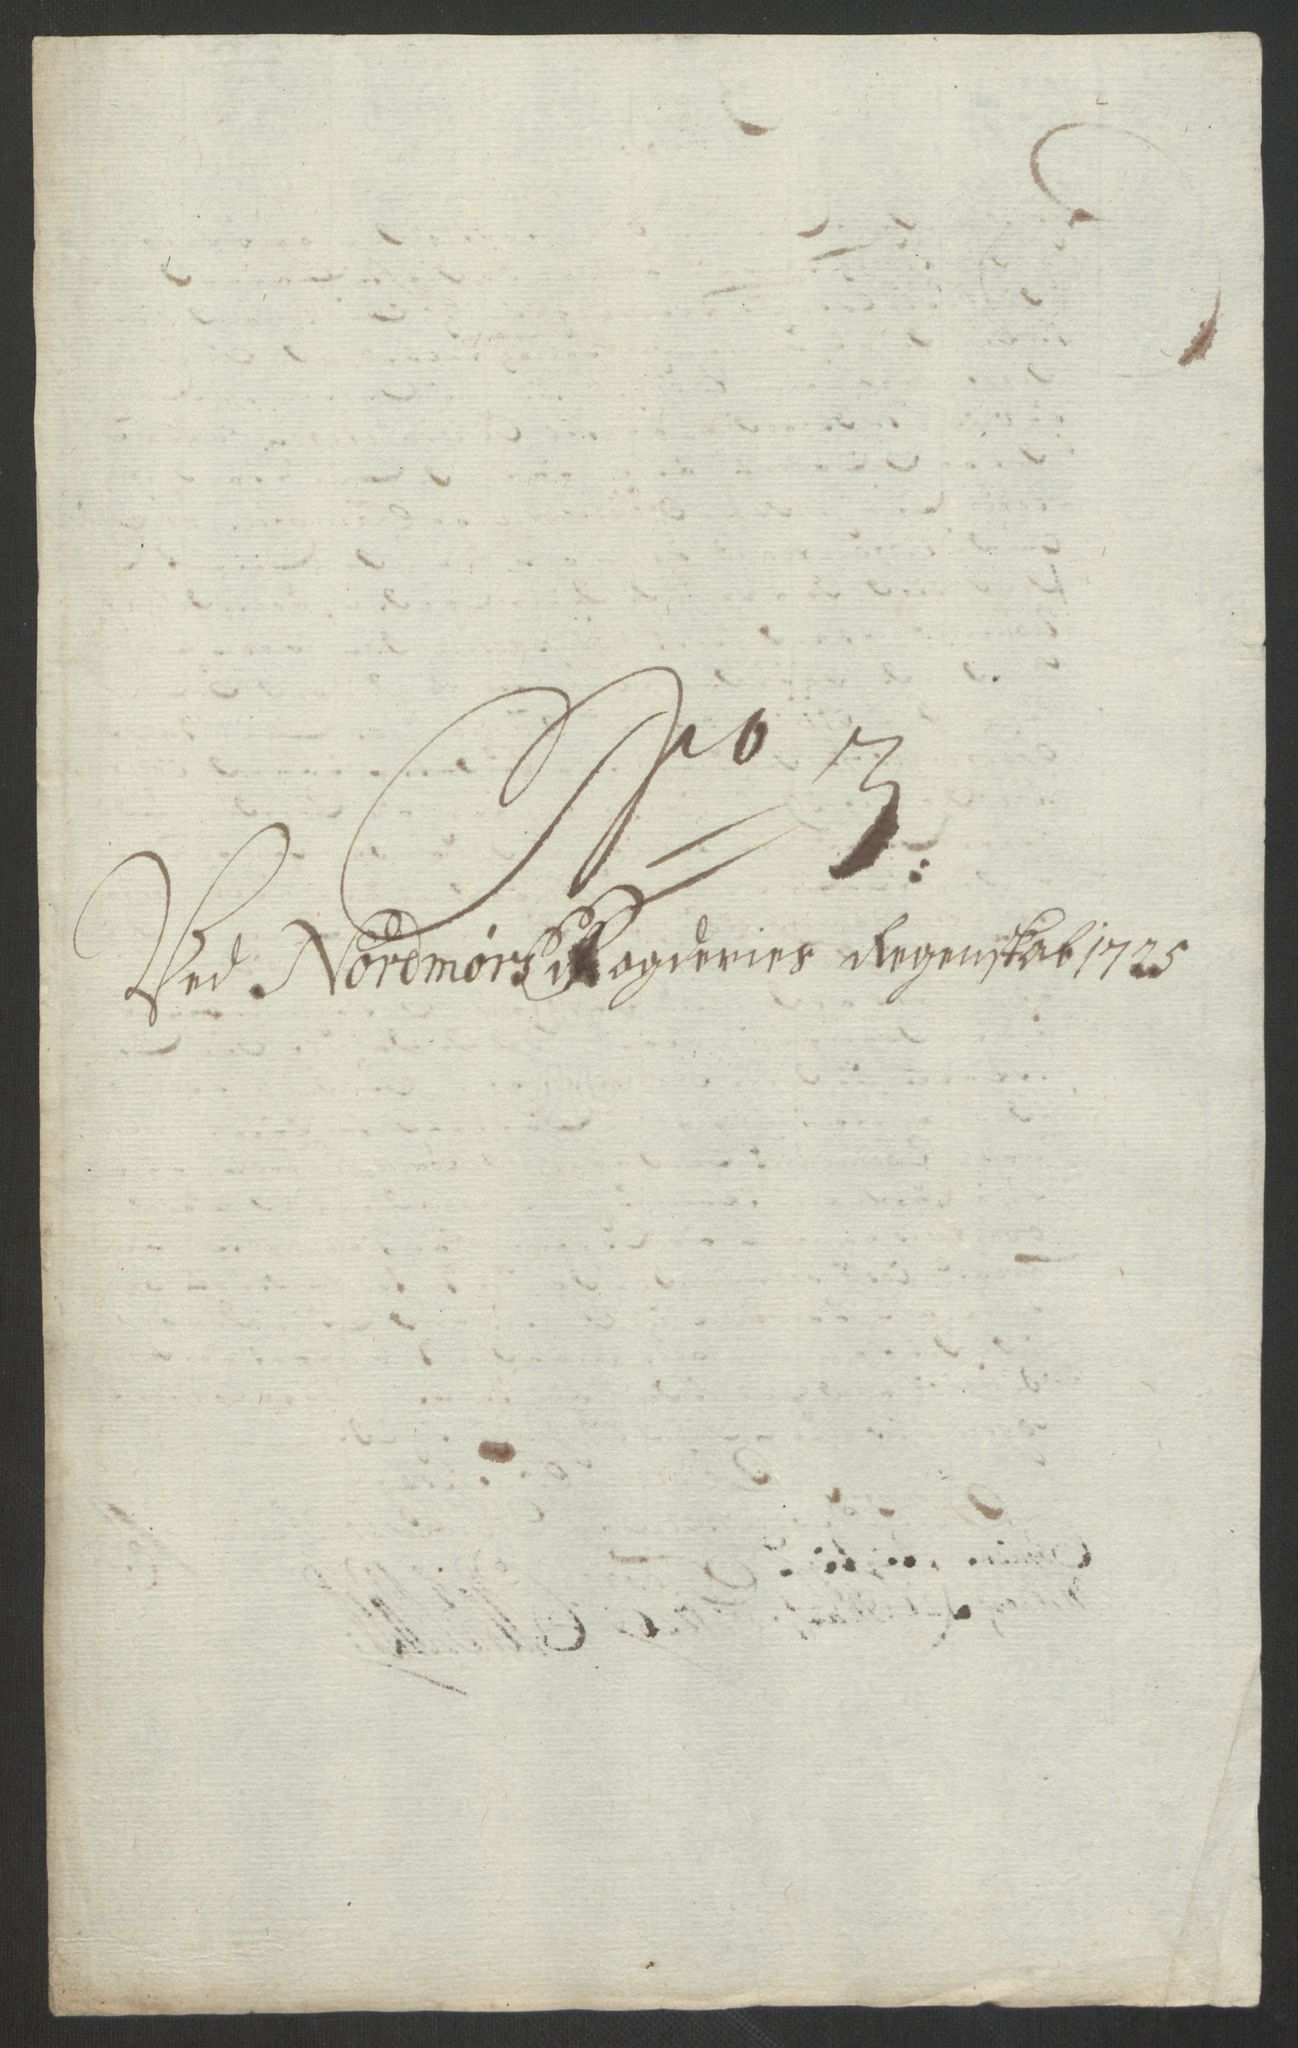 No 3:
Ved Nordmørs Fogderies Regenskab 1725